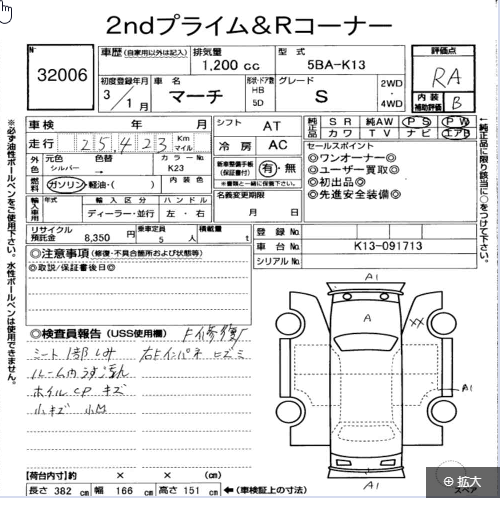 2ndプライム&Rコーナー
No
32006
車歴 (自家用以外は記入)
排気量
1,200 cc
型式
5BA-K13
評価点
RA
内装
補助評価
B
初度登録年月
3/1月
車名
マーチ
形状・ドア数
HB
5D
グレード
S
2WD
4WD
車検 年 月
走行 25,423 Km マイル
シフト AT
冷房 AC
純正品
SR 純AW PS PW
カワ TV ナビ エアB
外色
元色 色替
シルバー →
カラーNo.
K23
内装色
燃料
ガソリン・軽油・( )
新車整備手帳
(保証書付)
有・無
※書類と一緒に保管下さい。
輸入車用
輸入区分 ハンドル
ディーラー・並行 左・右
名義変更期限
月 日
セールスポイント
◎ワンオーナー◎
◎ユーザー買取◎
◎初出品◎
◎先進安全装備◎
リサイクル
預託金
8,350 円
乗車定員
5 人
積載量
t
登録No.
車台No. K13-091713
シリアルNo.
◎注意事項 (修復・不具合箇所および状態等)
◎取説/保証書後日◎
◎検査員報告 (USS使用欄)
シート1部しみ
ルーム内うす汚れ
ホイルCP キズ
小キズ 小凹
A1
A
XX
A1
A1
スペア
【荷台内寸】約 × × (cm)
長さ 382 cm 幅 166 cm 高さ 151 cm ←(車検証上の寸法)
※必ず油性ボールペンをご使用下さい。水性ボールペンは使用できません。
←純正品に限り該当に○をつけて下さい。
拡大